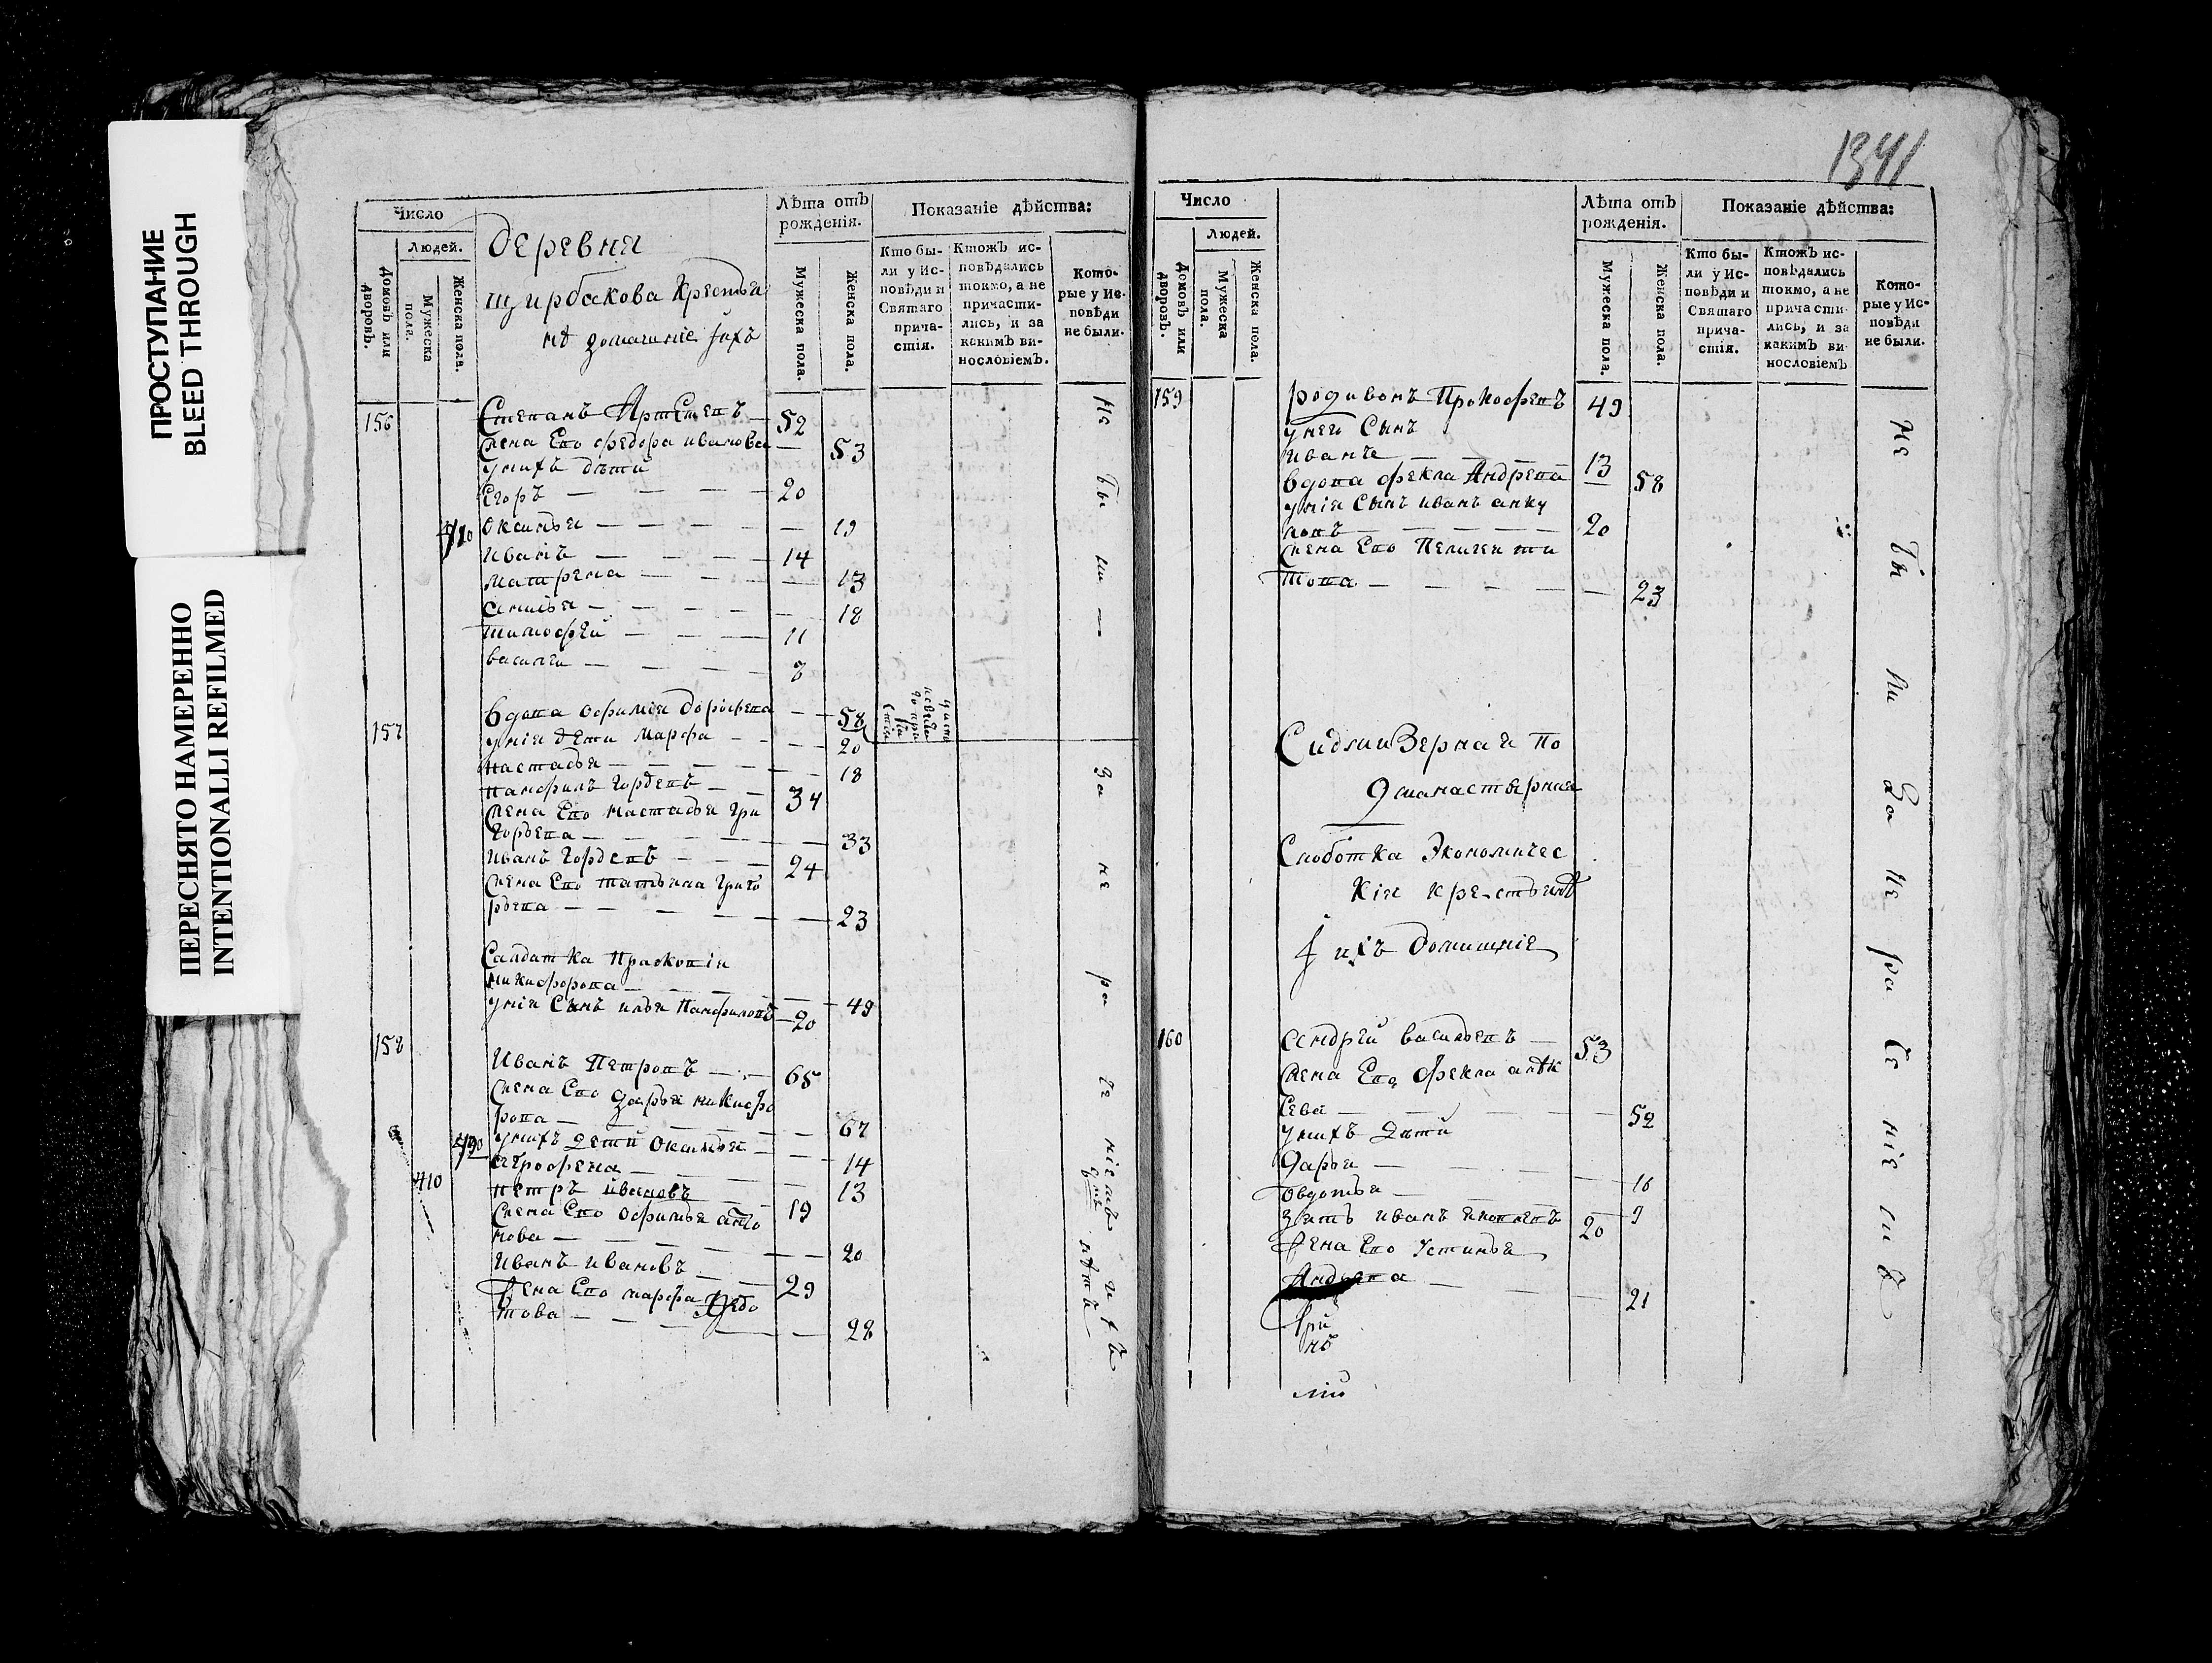 ПРОСТУПАНИЕ
BLEED THROUGH
ПЕРЕСНЯТО НАМЕРЕННО
INTENTIONALLI REFILMED
Число
Людей.
Домовъ или дворовъ.
Мужеска пола.
Женска пола.
деревня
щирбакова Крестья
нѣ домашние Јихъ
Лѣта отъ рожденія.
Мужеска пола.
Женска пола.
Показаніе дѣйства:
Кто бы-
ли у Ис-
повѣди и
Святаго
прича-
стія.
Ктожъ ис-
повѣдались
токмо, а не
причасти-
лись, и за
какимъ ви-
нословіемъ.
Кото-
рые у Ис-
повѣди
не были.
156 Степанъ Артемевъ 52
жена Его федора иванова 53
унихъ дѣти
Егоръ 20
Оксинья 19
иванъ 14
матрена 13
18
тимофей 11
василеи
157 вдова офимія дорофева 58
унія дети марфа 20
настасья 18
панфилъ гордевъ 34
жена Его настасья гри
горьева 33
иванъ гордевъ 24
жена Его татьяна григо
рьева 23
Салдатка Прасковія
никифорова 49
унія Сынъ илья Панфиловъ 20
158
Иванъ Петровъ 65
жена Его дарья никифо
рова 67
унихъ дети Оксинья 14
13
петръ ивановъ 19
жена Его офимья анто
нова 20
Иванъ ивановъ 29
жена Его марфа федо
това 28
не бы ли
за не ра че ніемъ ихъ
1341
Число
Людей.
Домовъ или дворовъ.
Мужеска пола.
Женска пола.
Лѣта отъ рожденія.
Мужеска пола.
Женска пола.
Показаніе дѣйства:
Кто бы-
ли у Ис-
повѣди и
Святаго
прича-
стія.
Ктожъ ис-
повѣдались
токмо, а не
причасти-
лись, и за
какимъ ви-
нословіемъ
Кото-
рые у Ис-
повѣди
не были.
159 родивонъ Прокофевъ 49
унеи Сынъ
иванъ 13
вдова фекла Андрева 58
унія Сынъ иванъ анку
новъ 20
жена Его Пелагея ти
това 23
по
дманастырная
Слоботка Экономичес
кія крестьянѣ
Ј ихъ домашніе
160 андрей васильевъ 53
жена Его фекла алѣк
сева 52
унихъ дѣти
дарья 16
овдотья 9
зять иванъ 20
жена Его Устинья
21
не бы ли за не ра че ніе мъ